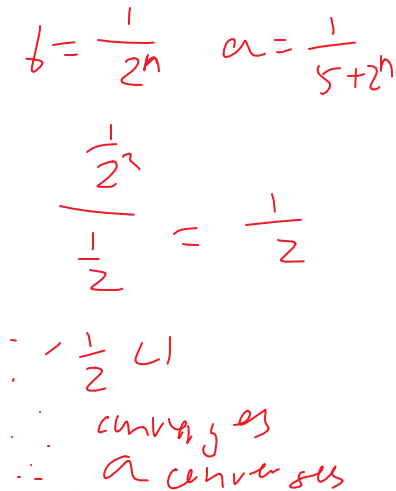 b = 1/2^n a = 1/(5+2^n)
(1/2^2)/(1/2) = 1/2
∵ 1/2 < 1
∴ converges
∴ a converges